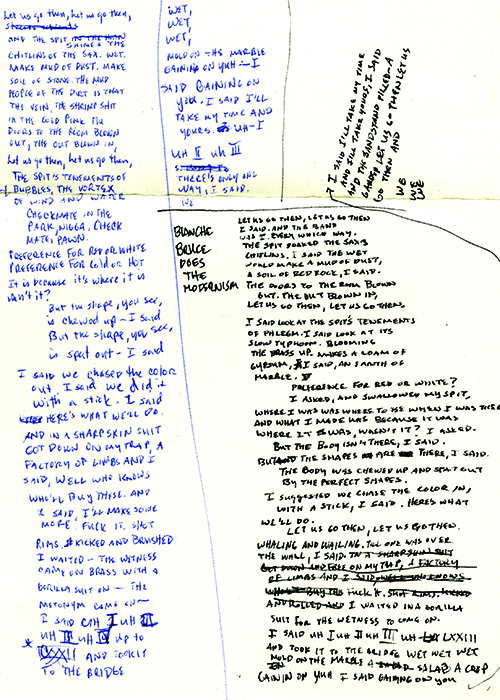 Let us go then, let us go then,
AND THE SPIT IN THE HORN
SHINES THE
CHITLINS OF THE SAX. WET.
MAKE MUD OF DUST. MAKE
SOIL OF STONE. THE MUD
PEOPLE OF THE DIRT IS THAT
THE VEIN, THE SHRIMP SHIT
IN THE COLD PINK THE
DOORS TO THE ROOM BLOWN
OUT, THE OUT BLOWN IN,
Let us go then, let us go then,
THE SPIT'S TENEMENTS OF
BUBBLES, THE VORTEX
OF WIND AND WATER
CHECKMATE IN THE
PARK, NIGGA. CHECK
MATE, PAWN.
PREFERENCE FOR RED OR WHITE
PREFERENCE FOR COLD OR HOT
It is because it's where it is
isn't it?
But the shape, you see,
is chewed up – I said
But the shape, you see,
is spat out – I said
I said we chased the color
out. I said we did it
with a stick. I said
HERE'S WHAT WE'LL DO.
AND IN A SHARPSKIN SUIT
GOT DOWN ON MY TRAP, A
FACTORY OF LIMBS AND I
SAID, WELL WHO KNOWS
WHO'LL BUY THESE. AND
I SAID, I'LL MAKE SOME
MORE. FUCK IT. SHOT
RIMS, KICKED AND BRUSHED
I WAITED – THE WETNESS
CAME ON BRASS WITH A
GORILLA SUIT ON – THE
METONYM CAME ON –
I SAID UH I UH II
UH III UH IV UP TO
LXXII AND TOOK IT
TO THE BRIDGE
WET,
WET,
WET,
MOLD ON THE MARBLE
GAINING ON YUH – I
SAID GAINING ON
YOU. I SAID I'LL
TAKE MY TIME AND
YOURS. UH – I
UH II UH III
THERE'S ONLY ONE
WAY, I SAID.
WE
I SAID I'LL TAKE MY TIME
AND I'LL TAKE YOURS, I SAID
AND THE SANDSTAND FILLED – A
GABBEN, LET US GO THEN LET US
GO THEN AND
WE
WE
BLANCHE
BRUCE
DOES
THE
MODERNISM
LET US GO THEN, LET US GO THEN
I SAID. AND THE BAND
WAS I. EVERY WHICH WAY.
THE SPIT SOAKED THE SAX'S
CHITLINS, I SAID THE WET
WOULD MAKE A MUD OF DUST,
A SOIL OF RED ROCK, I SAID.
THE DOORS TO THE ROOM BLOWN
OUT. THE OUT BLOWN IN,
LET US GO THEN, LET US GO THEN.
I SAID LOOK AT THE SPIT'S TENEMENTS
OF PHLEGM. I SAID LOOK AT ITS
SLOW TYPHOON. BLOOMING
THE BRASS UP. MAKES A LOAM OF
GYPSUM, I SAID, AN EARTH OF
MARBLE.
PREFERENCE FOR RED OR WHITE?
I ASKED, AND SWALLOWED MY SPIT,
WHERE I WAS WAS WHERE TO BE WHEN I WAS THERE
AND WHAT I MADE WAS BECAUSE IT WAS
WHERE IT WAS, WASN'T IT? I ASKED.
BUT THE BODY ISN'T THERE, I SAID.
BUT THE SHAPES ARE THERE, I SAID.
THE BODY WAS CHEWED UP AND SPAT OUT
BY THE PERFECT SHAPES.
I SUGGESTED WE CHASE THE COLOR IN,
WITH A STICK, I SAID. HERE'S WHAT
WE'LL DO.
LET US GO THEN, LET US GO THEN.
WHALING AND WAILING. TILL ONE WAS OVER
THE WALL, I SAID. IN A SHARPSKIN SUIT
GOT DOWN AND FREE ON MY TRAP, A FACTORY
OF LIMBS AND I SAID WELL WHO KNOWS
WHO'LL BUY THIS FUCK IT. SHOT RIMS, KICKED
AND ROLLED AND I WAITED IN A GORILLA
SUIT FOR THE WETNESS TO COME ON.
I SAID UH I UH II UH III UH LXXIII
AND TOOK IT TO THE BRIDGE WET WET WET
MOLD ON THE MARBLE A SALAD A CROP
GAININ ON YUH I SAID GAINING ON YOU